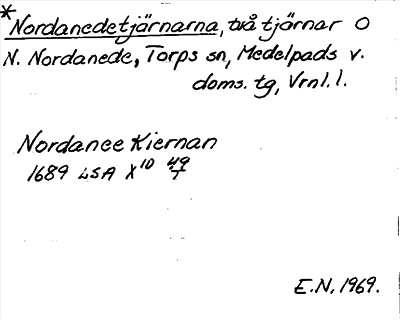 *Nordanedetjärnarna, två tjärnar O
N. Nordanede, Torps sn, Medelpads v.
doms. tg, Vrnl. l.
Nordanee Kiernan
1689 LSA X10 49/7
E.N. 1969.